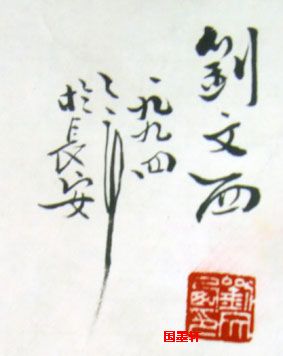 劉文西
一九九四
於長安
国墨轩